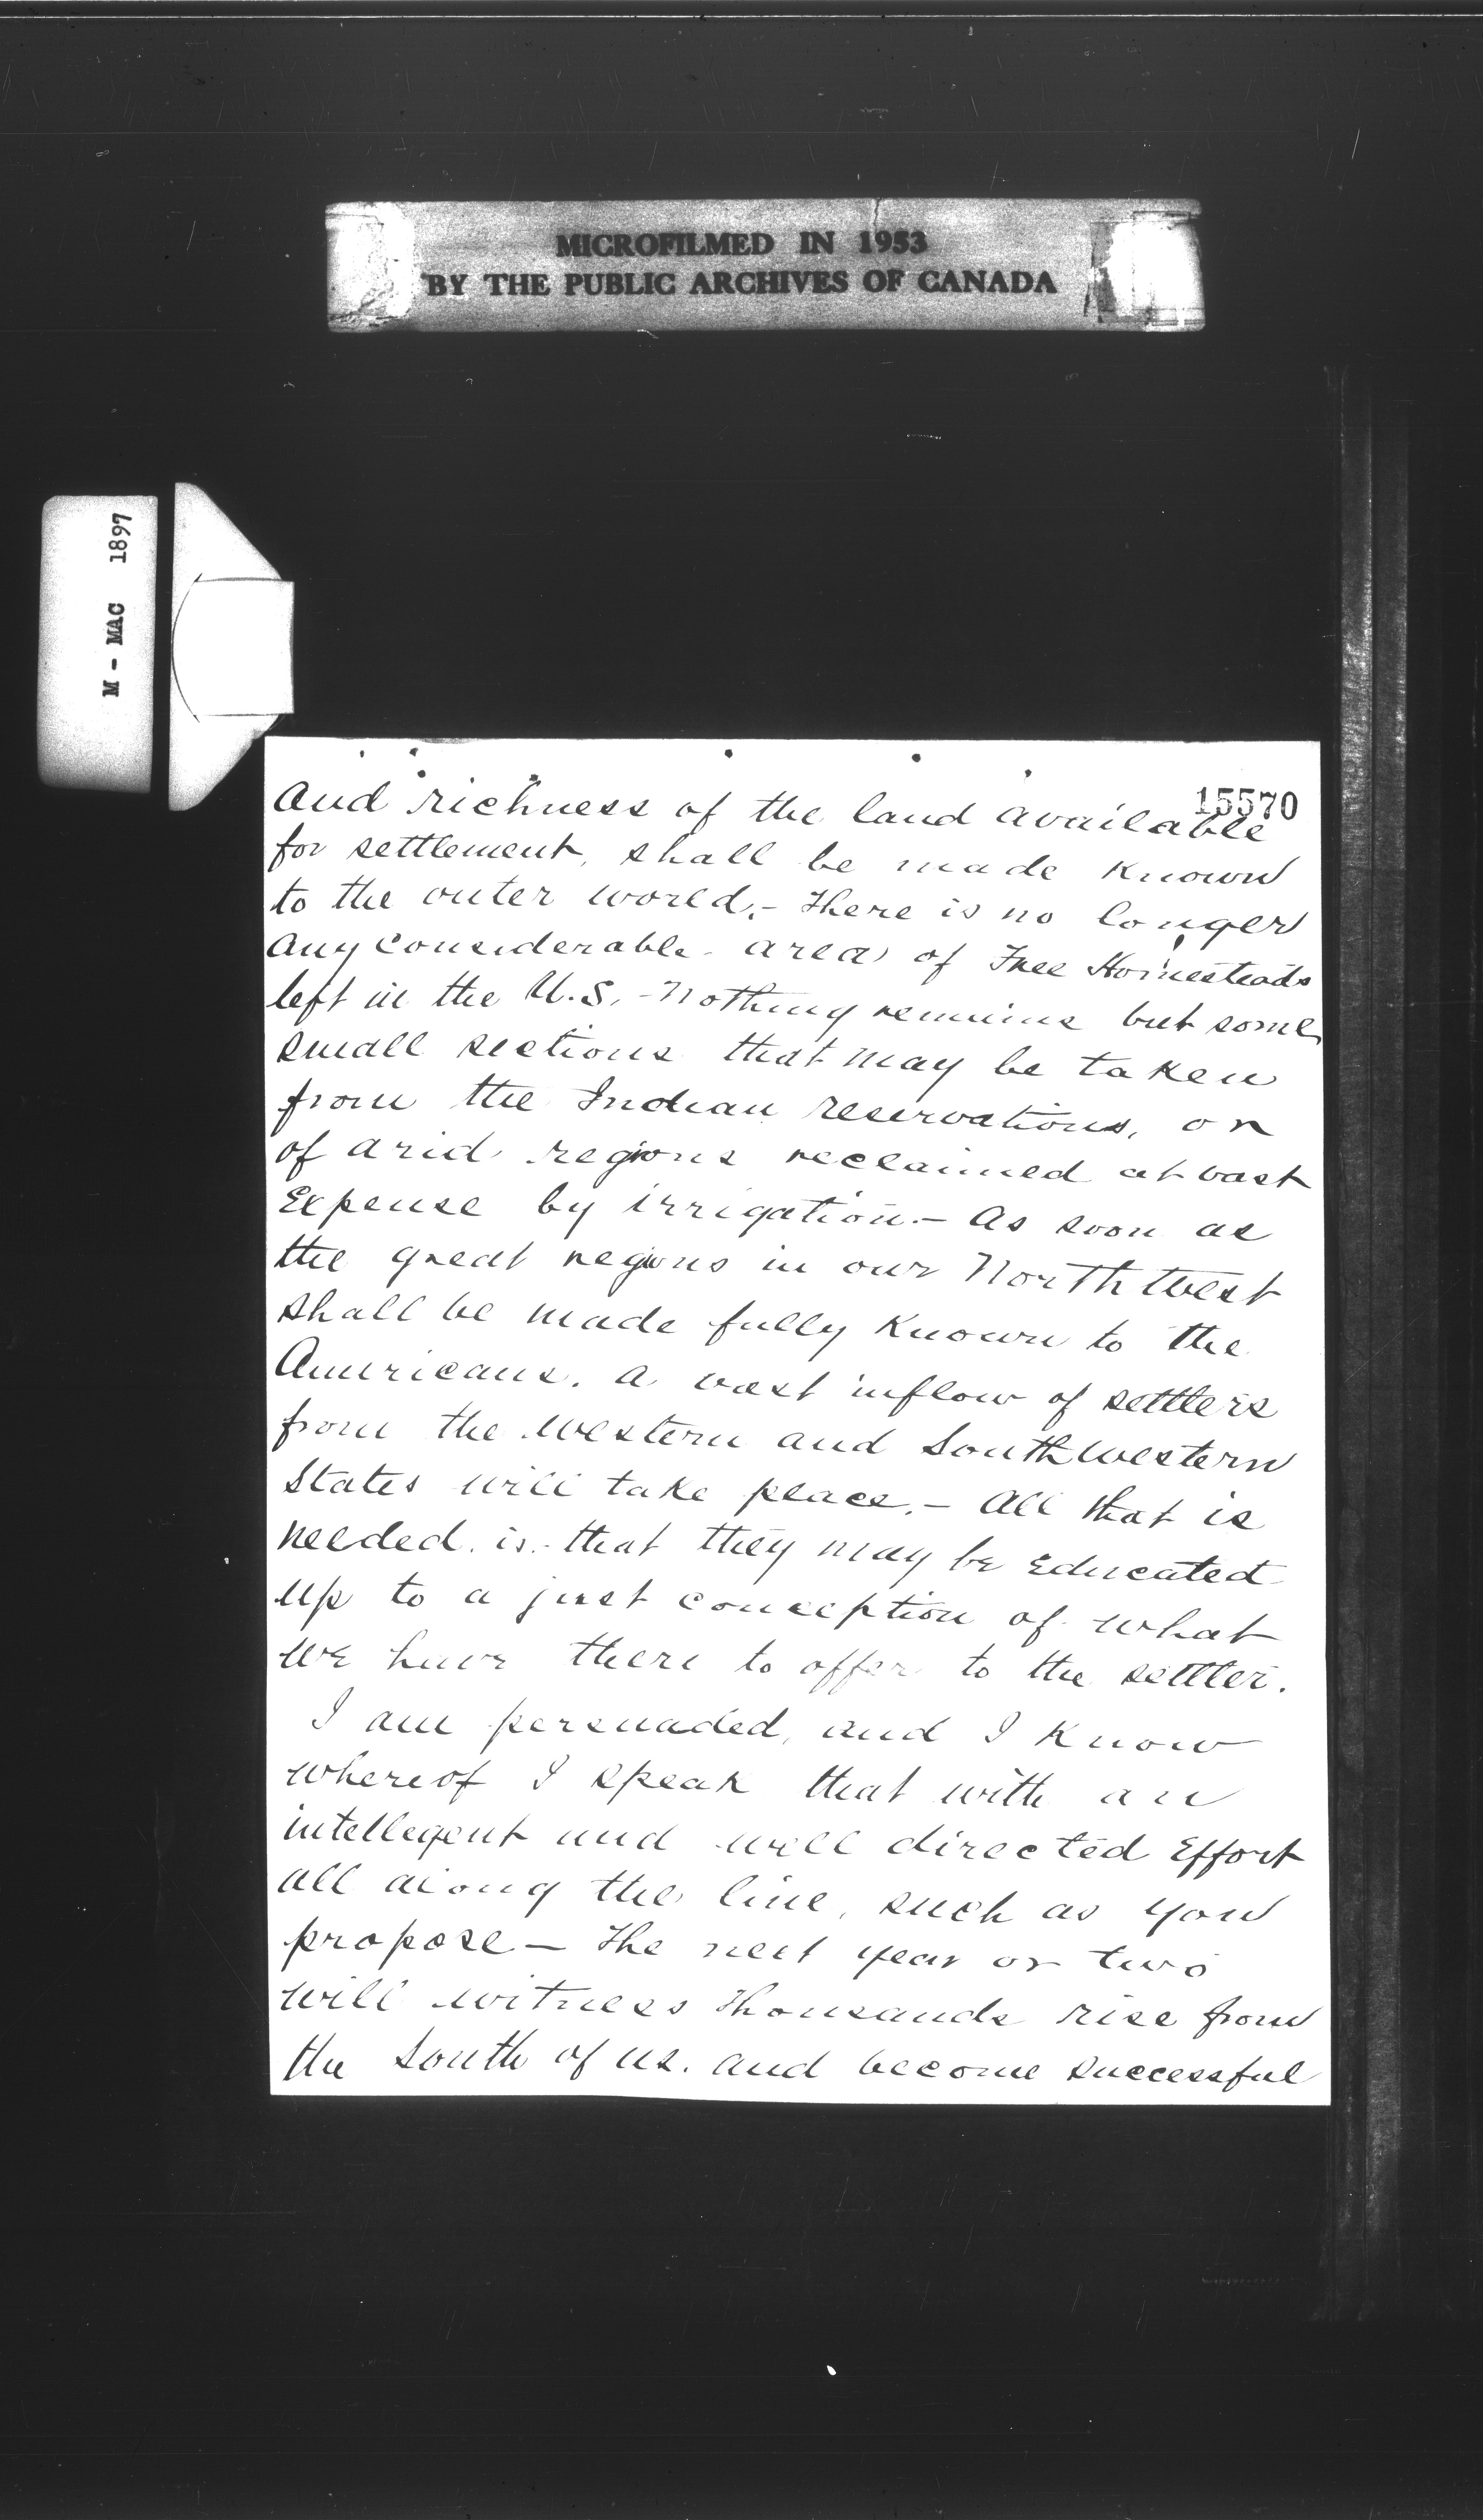 MICROFILMED IN 1953
BY THE PUBLIC ARCHIVES OF CANADA
M - MAC 1897
15570
and richness of the land available
for settlement, shall be made known
to the outer world.- There is no longer
any considerable area of Free Homesteads
left in the U.S.- Nothing remains but some
small sections that may be taken
from the Indian reservations, or
of arid regions reclaimed at vast
Expense by irrigation.- As soon as
the great regions in our North West
shall be made fully known to the
Americans. a vast inflow of settlers
from the western and Southwestern
States will take place.- All that is
needed is that they may be Educated
up to a just conception of what
we have there to offer to the settler.
I am persuaded, and I know
whereof I speak that with an
intellegent and well directed Effort
all along the line, such as you
propose - The next year or two
will witness thousands rise from
the South of us. and become successful